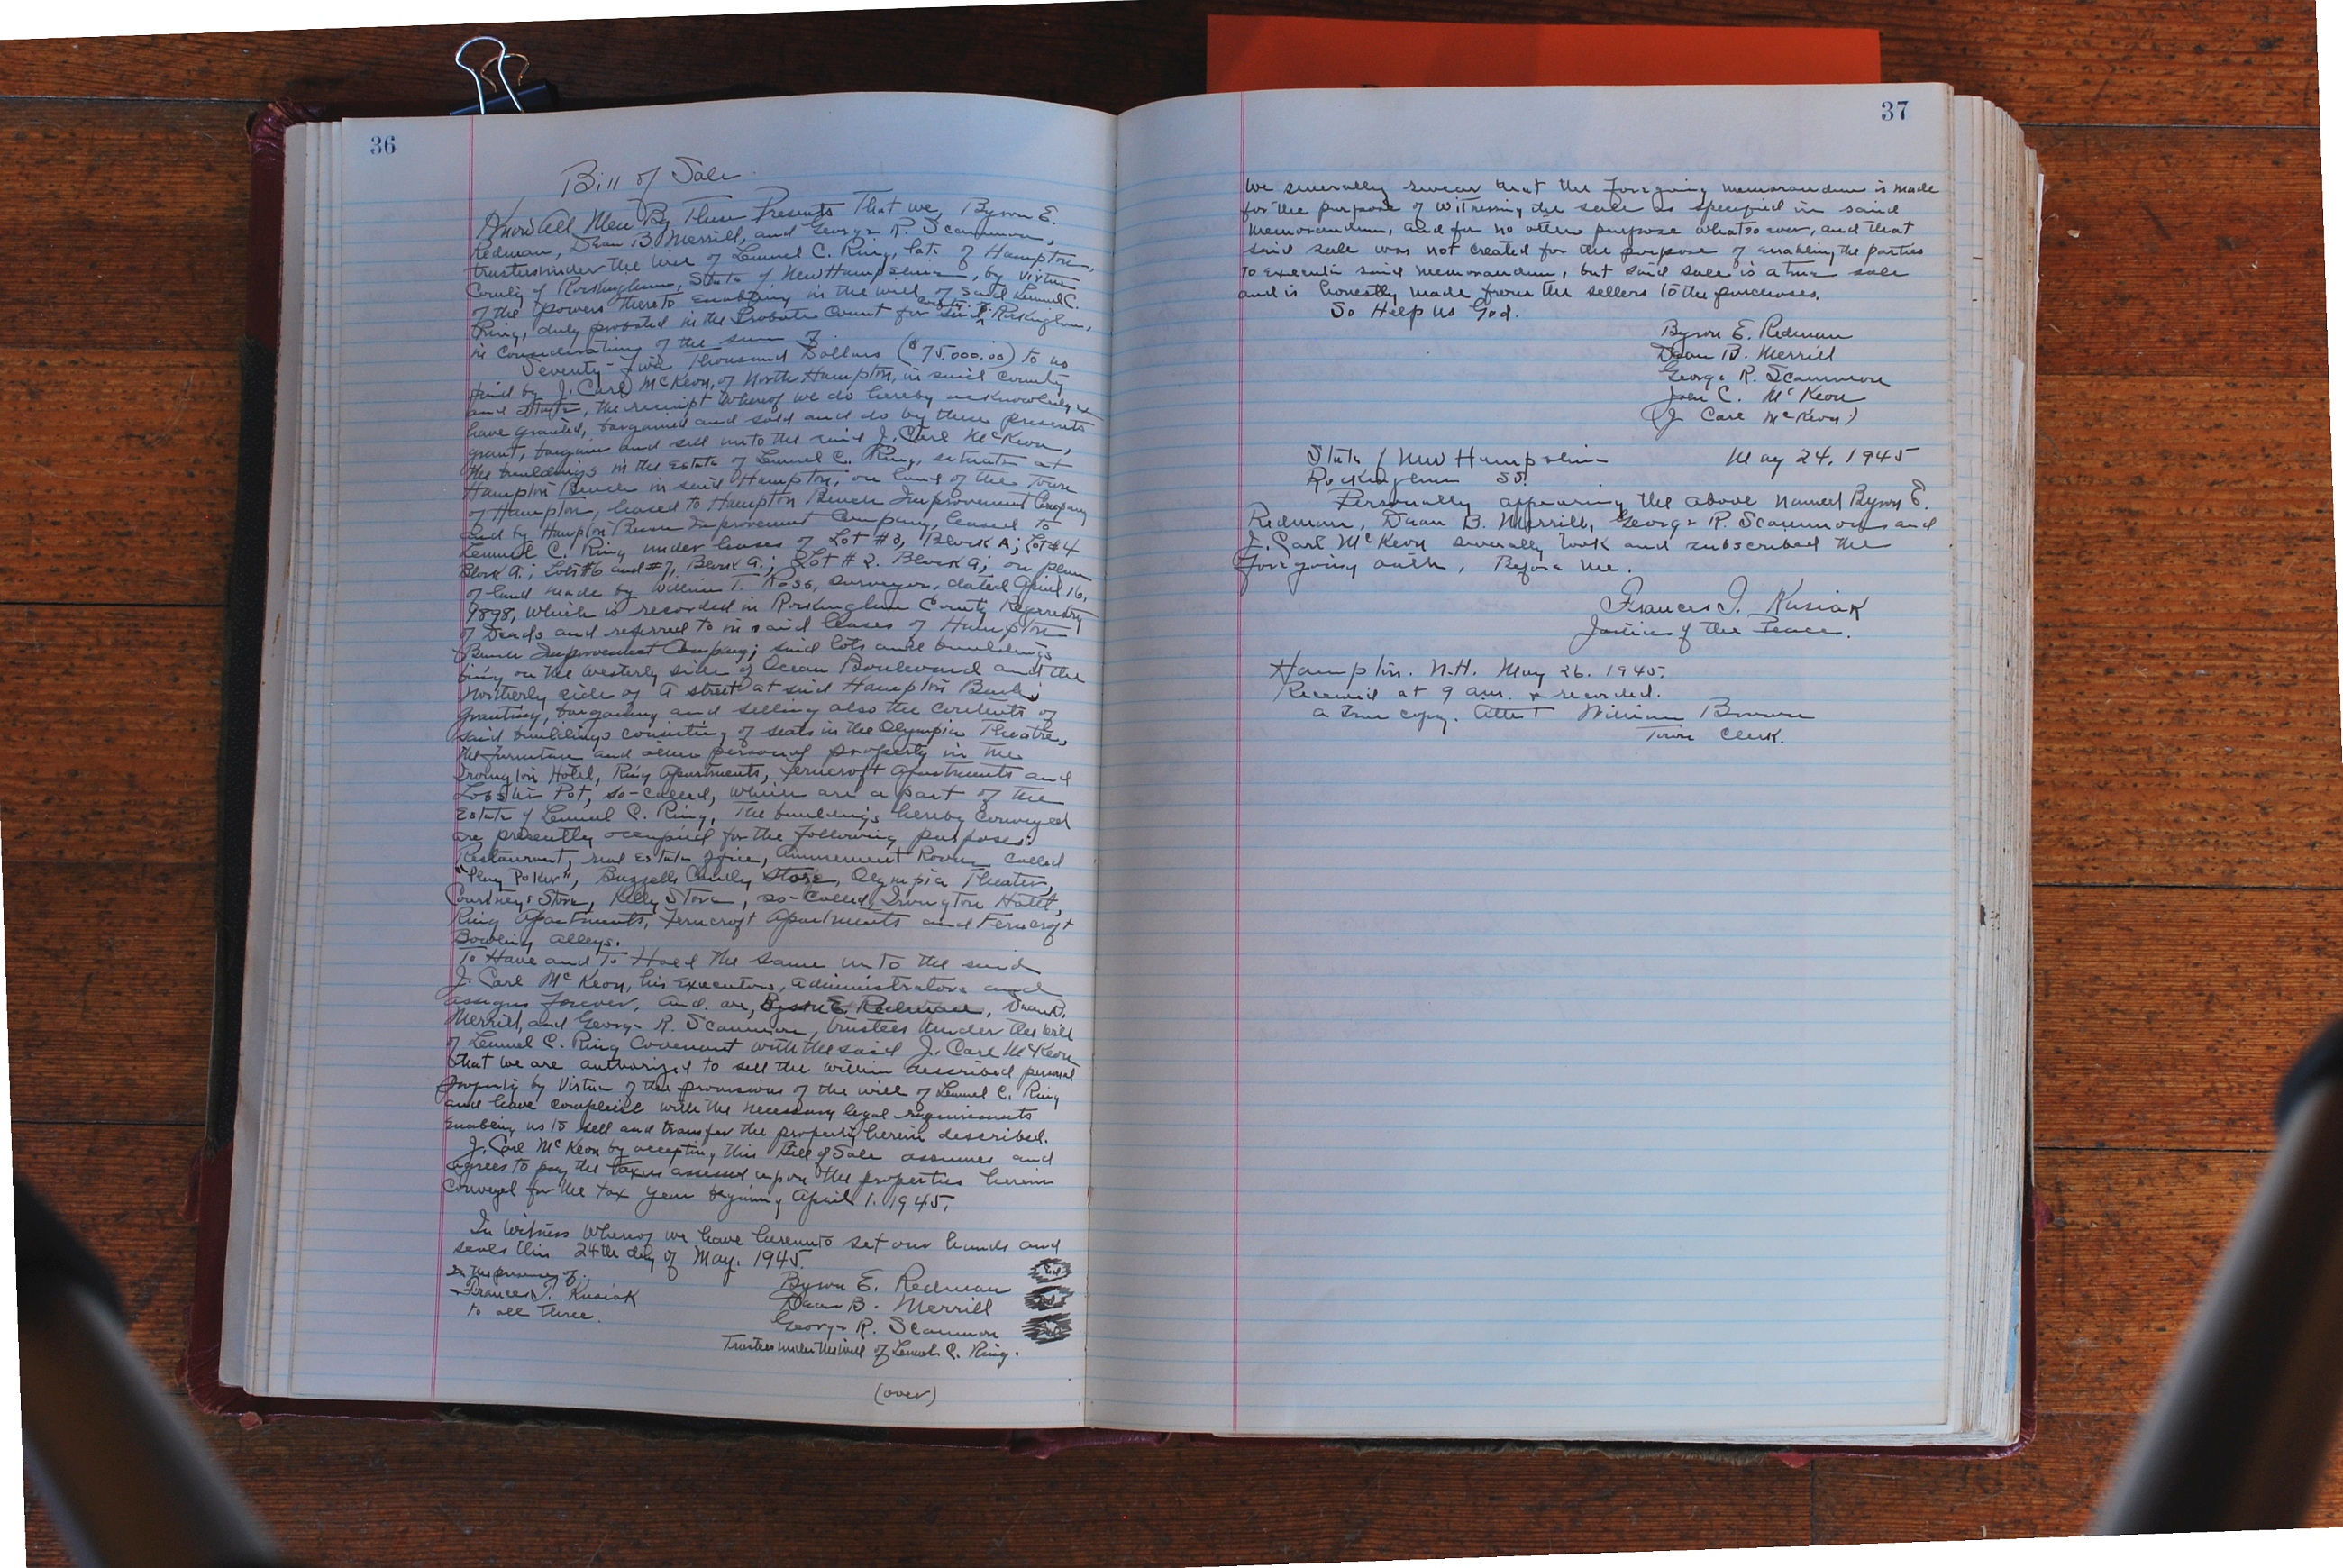 36
Bill of Sale
Know All Men By These Presents That we, Byron E.
Redman, Dean B. Merrill, and George R. Scammon,
trustees under the will of Lemuel C. Ring, late of Hampton,
County of Rockingham, State of New Hampshire, by virtue
of the powers thereto enabling in the will of said Lemuel C.
Ring, duly probated in the Probate Court for said County Rockingham,
in consideration of the sum of
Seventy-five Thousand Dollars ($75,000.00) to us
paid by J. Carl McKeon, of North Hampton, in said county
and state, the receipt whereof we do hereby acknowledge
have granted, bargained and sold and do by these presents
grant, bargain and sell unto the said J. Carl McKeon,
the buildings in the Estate of Lemuel C. Ring, situate at
Hampton Beach in said Hampton, on land of the Town
of Hampton, leased to Hampton Beach Improvement Company
and by Hampton Beach Improvement Company, leased to
Lemuel C. Ring under leases of Lot #3, Block A; Lot #4
Block A.; Lots #6 and #7, Block A.; Lot # 2. Block A; on plan
of land made by William T. Ross, surveyor, dated April 16,
1898, which is recorded in Rockingham County Regerestry
of Deeds and referred to in said leases of Hampton
Beach Improvement Company; said lots and buildings
being on the westerly side of Ocean Boulevard and the
northerly side of A street at said Hampton Beach;
Granting, bargaining and selling also the contents of
said buildings consisting of seats in the Olympia Theatre,
the furniture and other personal property in the
Irvington Hotel, Ring Apartments, Ferncroft Apartments and
Lobster Pot, so-called, which are a part of the
Estate of Lemuel C. Ring, The buildings hereby conveyed
are presently occupied for the following purposes:
Restaurant, real Estate office, Amusement Room called
"Play Poker", Buzzells Candy Store, Olympia Theater,
Courtneys Store, Kelly Store, so-called, Irvington Hotel,
Ring Apartments, Ferncroft Apartments and Ferncroft
Bowling Alleys.
To Have and To Hold the same unto the said
J. Carl McKeon, his executors, administrators and
assigns forever, And we, Byron E. Redman, Dean B.
Merrill, and George R. Scammon, trustees under the will
of Lemuel C. Ring covenant with the said J. Carl McKeon
that we are authorized to sell the within described personal
property by virtue of the provisions of the will of Lemuel C. Ring
and have complied with the necessary legal requirements
enabling us to sell and transfer the property herein described.
J. Carl McKeon by accepting this Bill of Sale assumes and
agrees to pay the taxes assessed upon the properties herein
conveyed for the tax year begining April 1. 1945.
In witness whereof we have hereunto set our hands and
seals this 24th day of May. 1945.
In the presence of.
Frances J. Kusiak
to all three.
Byron E. Redman Seal
Dean B. Merrill Seal
George R. Scammon Seal
Trustees under the will of Lemuel C. Ring.
(over)
37
We severally swear that the foregoing memorandum is made
for the purpose of witnessing the sale as specified in said
memorandum, and for no other purpose whatsoever, and that
said sale was not created for the purpose of enabling the parties
to execute said memorandum, but said sale is a true sale
and is honestly made from the sellers to the purchases.
So Help us God.
Byron E. Redman
Dean B. Merrill
George R. Scammon
John C. McKeon
(J Carl McKeon)
State of New Hampshire May 24, 1945
Rockingham SS.
Personally appearing the above named Byron E.
Redman, Dean B. Merrill, George R. Scammon and
J. Carl McKeon severally took and subscribed the
foregoing oath, Before me.
Frances J. Kusiak
Justice of the Peace.
Hampton. N.H. May 26. 1945.
Received at 9 am. & recorded.
a true copy. Attest William Brown
Town Clerk.